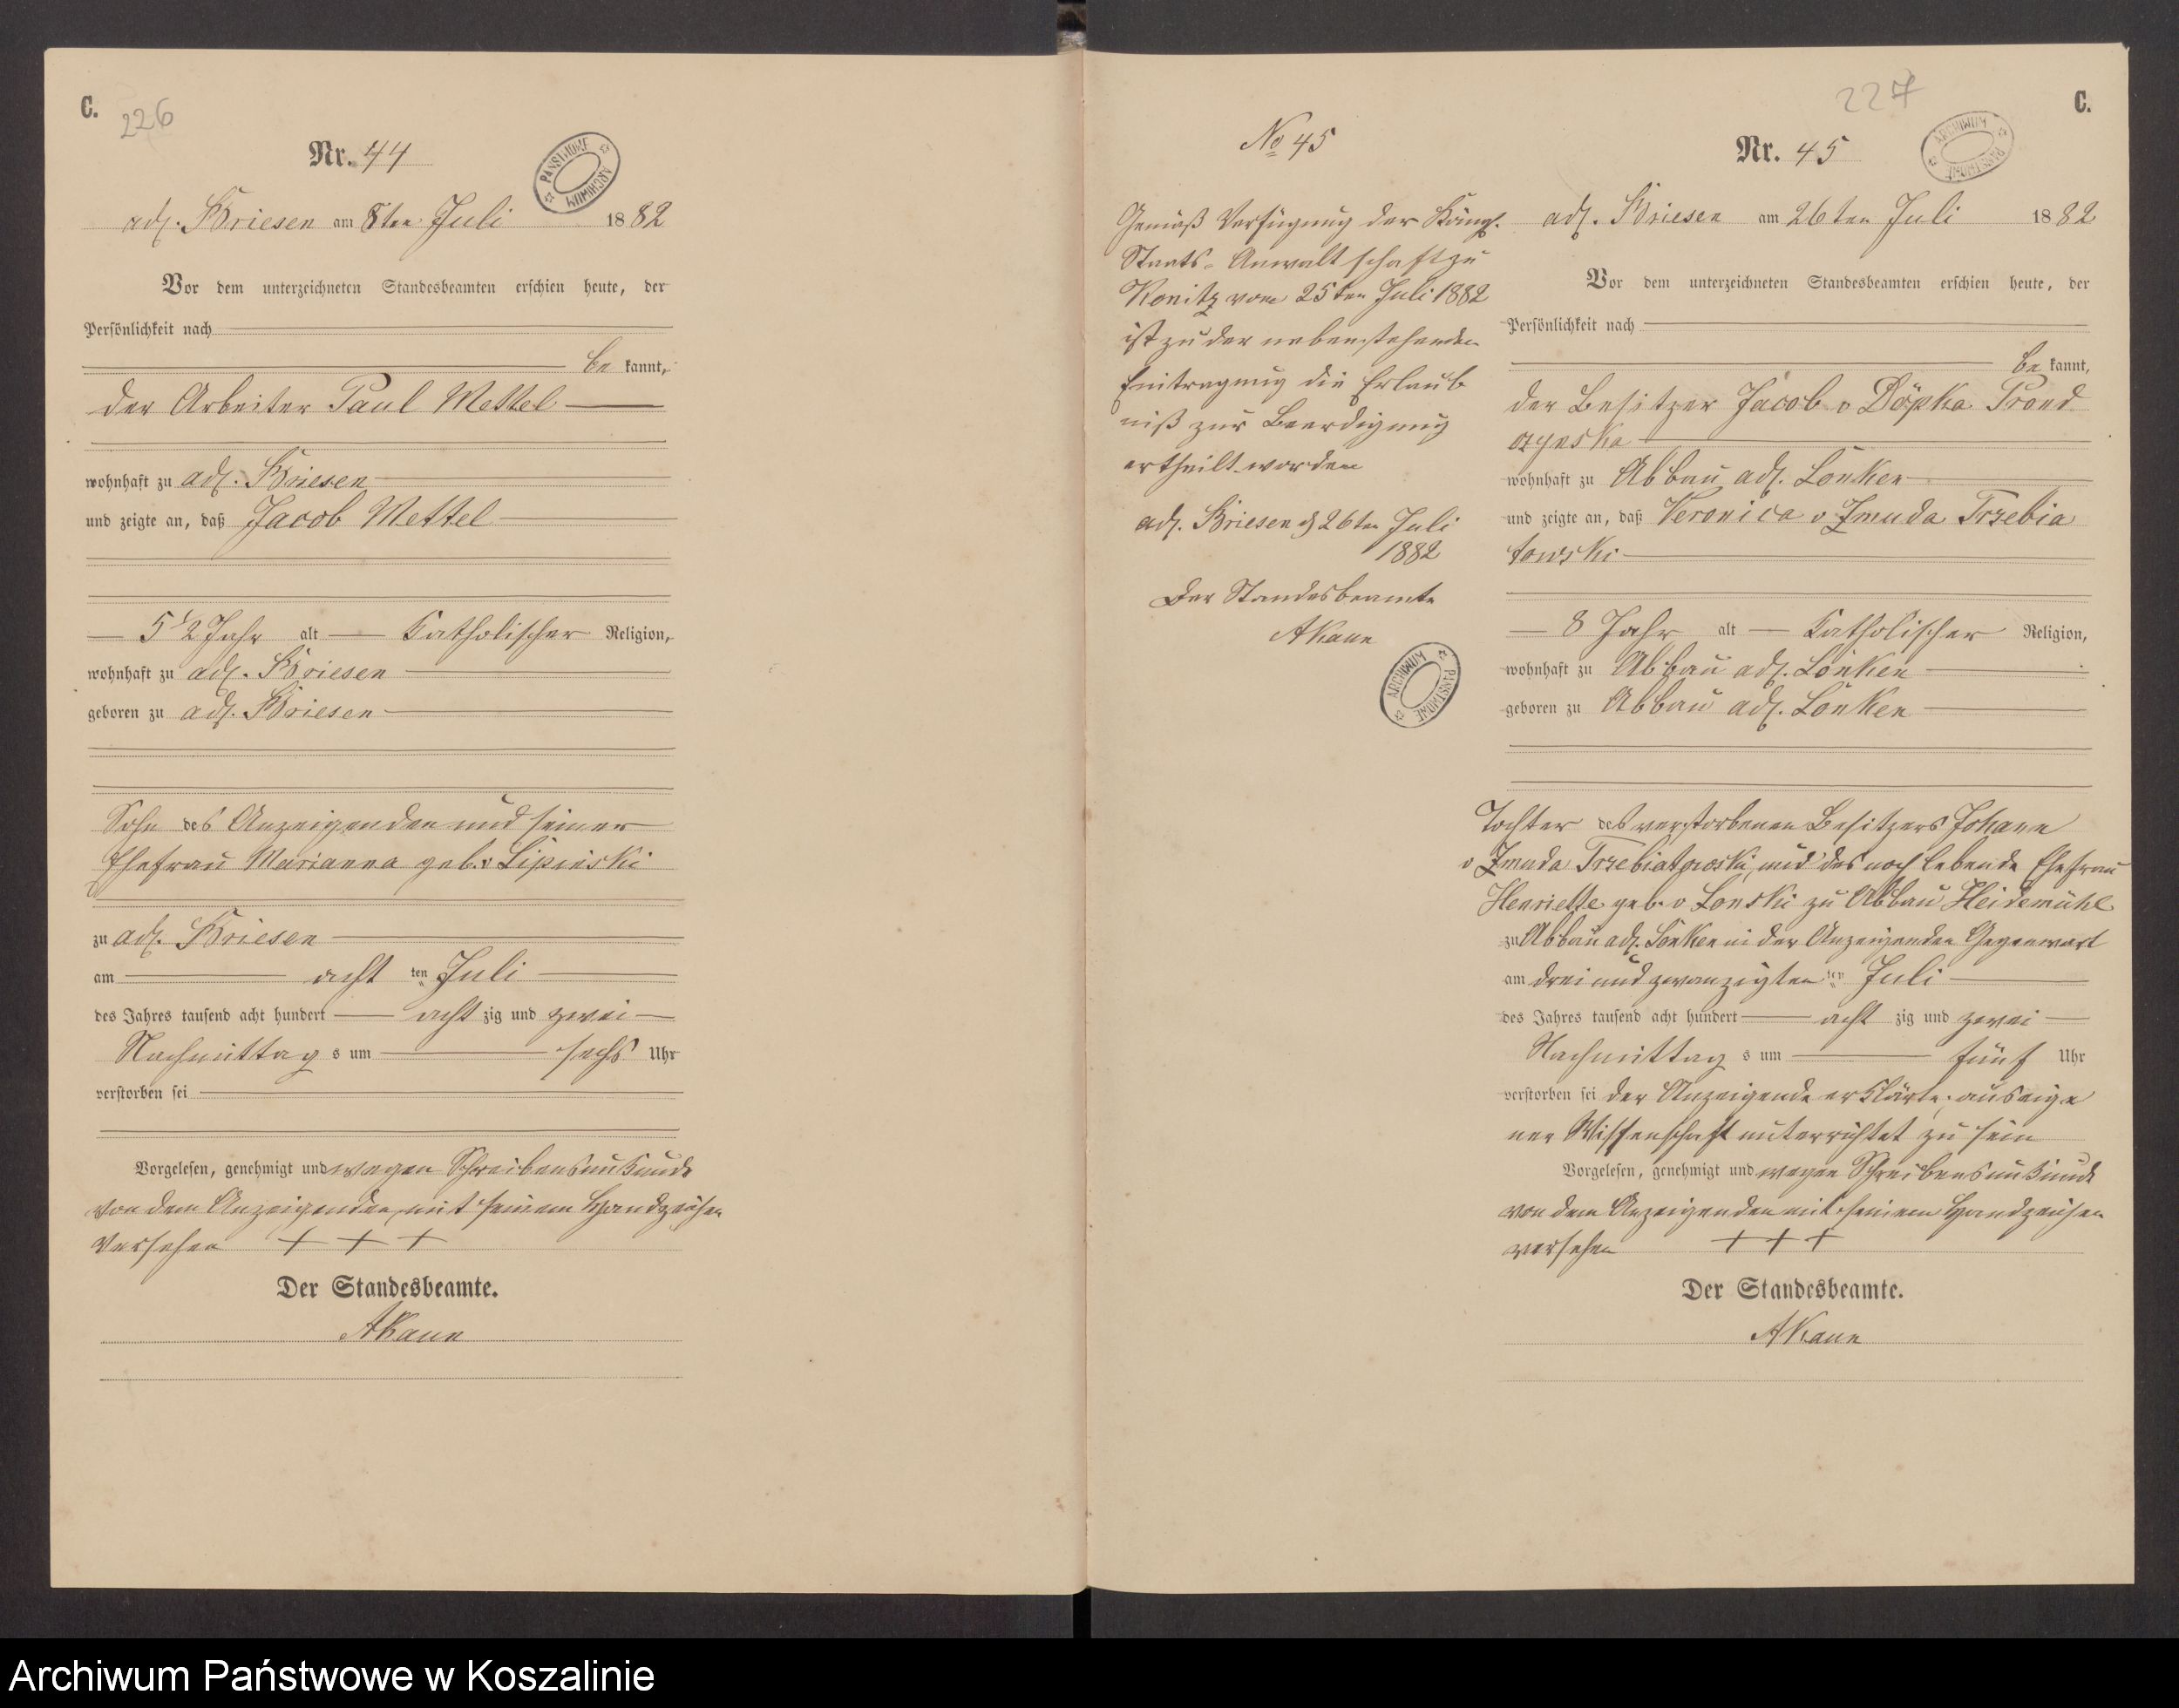 C.
226
Nr. 44
PAŃSTWOWE ARCHIWUM
adl. Briesen am 8ten Juli 1882
Vor dem unterzeichneten Standesbeamten erschien heute, der
Persönlichkeit nach
be kannt,
der Arbeiter Paul Mettel
wohnhaft zu adl. Briesen
und zeigte an, daß Jacob Mettel
5 1/2 Jahr alt Katholischer Religion,
wohnhaft zu adl. Briesen
geboren zu adl. Briesen
Sohn des Anzeigenden und seiner
Ehefrau Marianna geb. v Lipinski
zu adl. Briesen
am acht ten Juli
des Jahres tausend acht hundert acht zig und zwei
Nachmittag s um sechs Uhr
verstorben sei
Vorgelesen, genehmigt und wegen Schreibensunkunde
von dem Anzeigenden mit seinem Handzeichen
versehen + + +
Der Standesbeamte.
AKaun
No 45
Gemäß Verfügung der Königl.
Staats-Anwaltschaft zu
Konitz vom 25ten Juli 1882
ist zu der nebenstehenden
Eintragung die Erlaub
niß zur Beerdigung
ertheilt worden
adl. Briesen d 26ten Juli
1882
Der Standesbeamte
AKaun
ARCHIWUM PAŃSTWOWE
227
C.
Nr. 45
ARCHIWUM PAŃSTWOWE
adl. Briesen am 26ten Juli 1882
Vor dem unterzeichneten Standesbeamten erschien heute, der
Persönlichkeit nach
be kannt,
der Besitzer Jacob v Döpka Prond
zynska
wohnhaft zu Abbau adl. Lonken
und zeigte an, daß Veronica v Zmuda Trzebia
towski
8 Jahr alt Katholischer Religion,
wohnhaft zu Abbau adl. Lonken
geboren zu Abbau adl. Lonken
Tochter des verstorbenen Besitzers Johann
v Zmuda Trzebiatowski und des noch lebende Ehefrau
Henriette geb. v Lonski zu Abbau Heidemühl
zu Abbau adl. Lonken in der Anzeigenden Gegenwart
am drei und zwanzigten ten Juli
des Jahres tausend acht hundert acht zig und zwei
Nachmittag s um fünf Uhr
verstorben sei der Anzeigende erklärte, aus eige
ner Wissenschaft unterrichtet zu sein
Vorgelesen, genehmigt und wegen Schreibensunkunde
von dem Anzeigenden mit seinem Handzeichen
versehen + + +
Der Standesbeamte.
AKaun
Archiwum Państwowe w Koszalinie